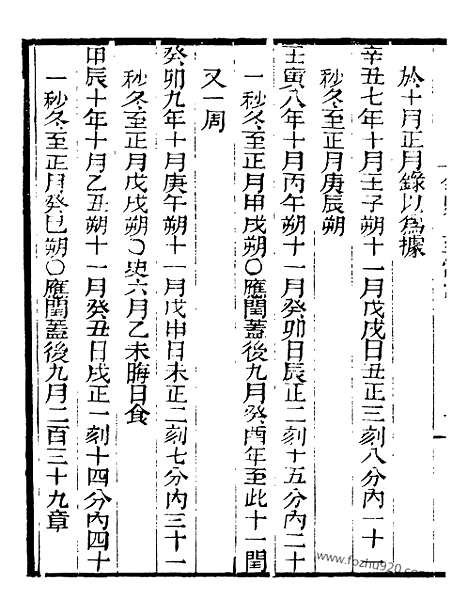 於十月正月錄以為據
辛丑七年十月壬子朔十一月戊戌日丑正三刻八分內一十
秒冬至正月庚辰朔
壬寅八年十月丙午朔十一月癸卯日辰正二刻十五分內二十
一秒冬至正月甲戌朔〇應閏蓋後九月癸酉年至此十一閏
又一周
癸卯九年十月庚午朔十一月戊申日未正二刻七分內三十一
秒冬至正月戊戌朔〇史六月乙未晦日食
甲辰十年十月乙丑朔十一月癸丑日戌正一刻十四分內四十
一秒冬至正月癸巳朔〇應閏蓋後九月二百三十九章
www.fozhu920.com